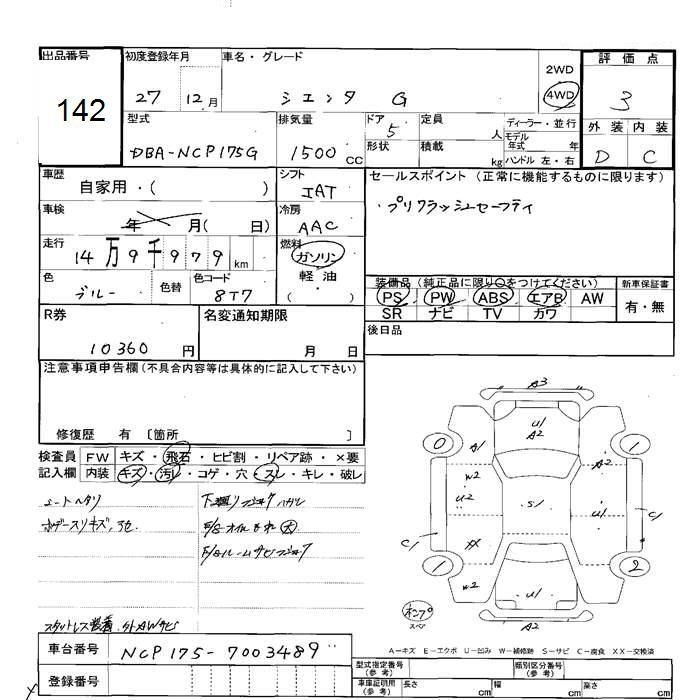 出品番号
142
初度登録年月
27 12月
車名・グレード
シエンタ G
2WD
4WD
評価点
3
外装 内装
D C
型式
DBA-NCP175G
排気量
1500 CC
ドア
5
形状
定員
人
積載
kg
ディーラー・並行
モデル
年式 年
ハンドル 左・右
車歴
自家用・( )
シフト
IAT
セールスポイント (正常に機能するものに限ります)
・プリクラッシュセーフティ
車検
年 月( 日)
冷房
AAC
走行
14万9千979 km
燃料
ガソリン
軽油
( )
色
ブルー
色替
色コード
8T7
装備品 (純正品に限り○をつけてください)
PS PW ABS エアB AW
SR ナビ TV カワ
新車保証書
有・無
後日品
R券
10360 円
名変通知期限
月 日
注意事項申告欄(不具合内容等は具体的に記入して下さい)
修復歴 有 〔箇所 〕
検査員
記入欄
FW キズ・飛石・ヒビ割・リペア跡・×要
内装 キズ・汚レ・コゲ・穴・スレ・キレ・破レ
シートヘタリ
下廻リ
スタットレス装着
A3
U1
A2
0
A1
1
A2
W2
U2
S1
U1
C1
C1
XX
1
2
W2
U1
A2
スペア
A-キズ E-エクボ U-凹み W-補修跡 S-サビ C-腐食 XX-交換済
車台番号
NCP175-7003489
登録番号
型式指定番号
(参考)
類別区分番号
(参考)
車庫証明用
(参考)
長さ cm
幅 cm
高さ cm